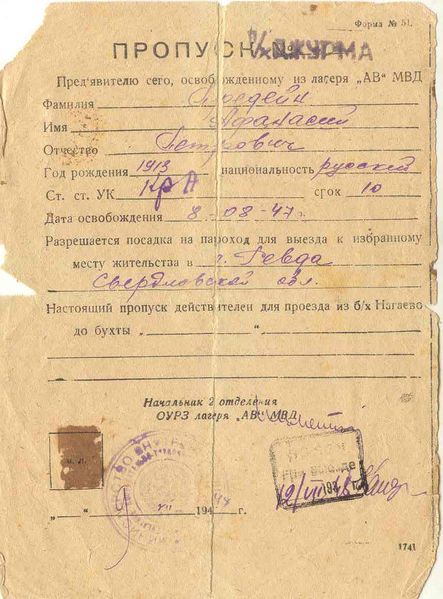 Форма № 51.
ПРОПУСК № ДЖУРМА
Пред'явителю сего, освобожденному из лагеря „АВ“ МВД
Фамилия
Имя Афанасий
Отчество Петрович
Год рождения 1913 национальность русский
Ст. ст. УК КрА срок 10
Дата освобождения 8-08-47
Разрешается посадка на пароход для выезда к избранному
месту жительства в г. Ревда
Свердловской обл.
Настоящий пропуск действителен для проезда из б/х Нагаево
до бухты „ “
Начальник 2 отделения
ОУРЗ лагеря „АВ“ МВД
„ “ 194 г.
1741